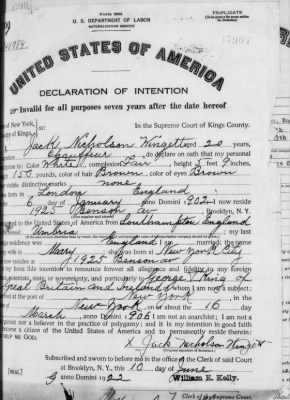 Form 2203
TRIPLICATE
U. S. DEPARTMENT OF LABOR
NATURALIZATION SERVICE
UNITED STATES OF AMERICA
DECLARATION OF INTENTION
Invalid for all purposes seven years after the date hereof
of New York,
In the Supreme Court of Kings County.
Jack Nicholson Wingett 20 years,
Chauffeur, do declare on oath that my personal
Color White, complexion Fair, height 5 feet 9 inches,
150 pounds, color of hair Brown, color of eyes Brown
visible distinctive marks none
London England
6 day of January, anno Domini 1902; I now reside
1925 Benson av Brooklyn, N.Y.
to the United States of America from Southampton England
Umbria; my last
residence was England; I am married; the name
Mary was born at New York City
at 1925 Benson av
bona fide intention to renounce forever all allegiance and fidelity to any foreign
potentate, state, or sovereignty, and particularly to George V King of
Great Britain and Ireland of whom I am now a subject;
arrived at the port of New York, in the
New York on or about the 16 day
March, anno Domini 1906; I am not an anarchist; I am not a
polygamist nor a believer in the practice of polygamy; and it is my intention in good faith
become a citizen of the United States of America and to permanently reside therein:
HELP ME GOD.
x Jack Nicholson Wingett
Subscribed and sworn to before me in the office of the Clerk of said Court
at Brooklyn, N.Y., this 10 day of June
[SEAL] anno Domini 1922 William E. Kelly.
Clerk of the Supreme Court.